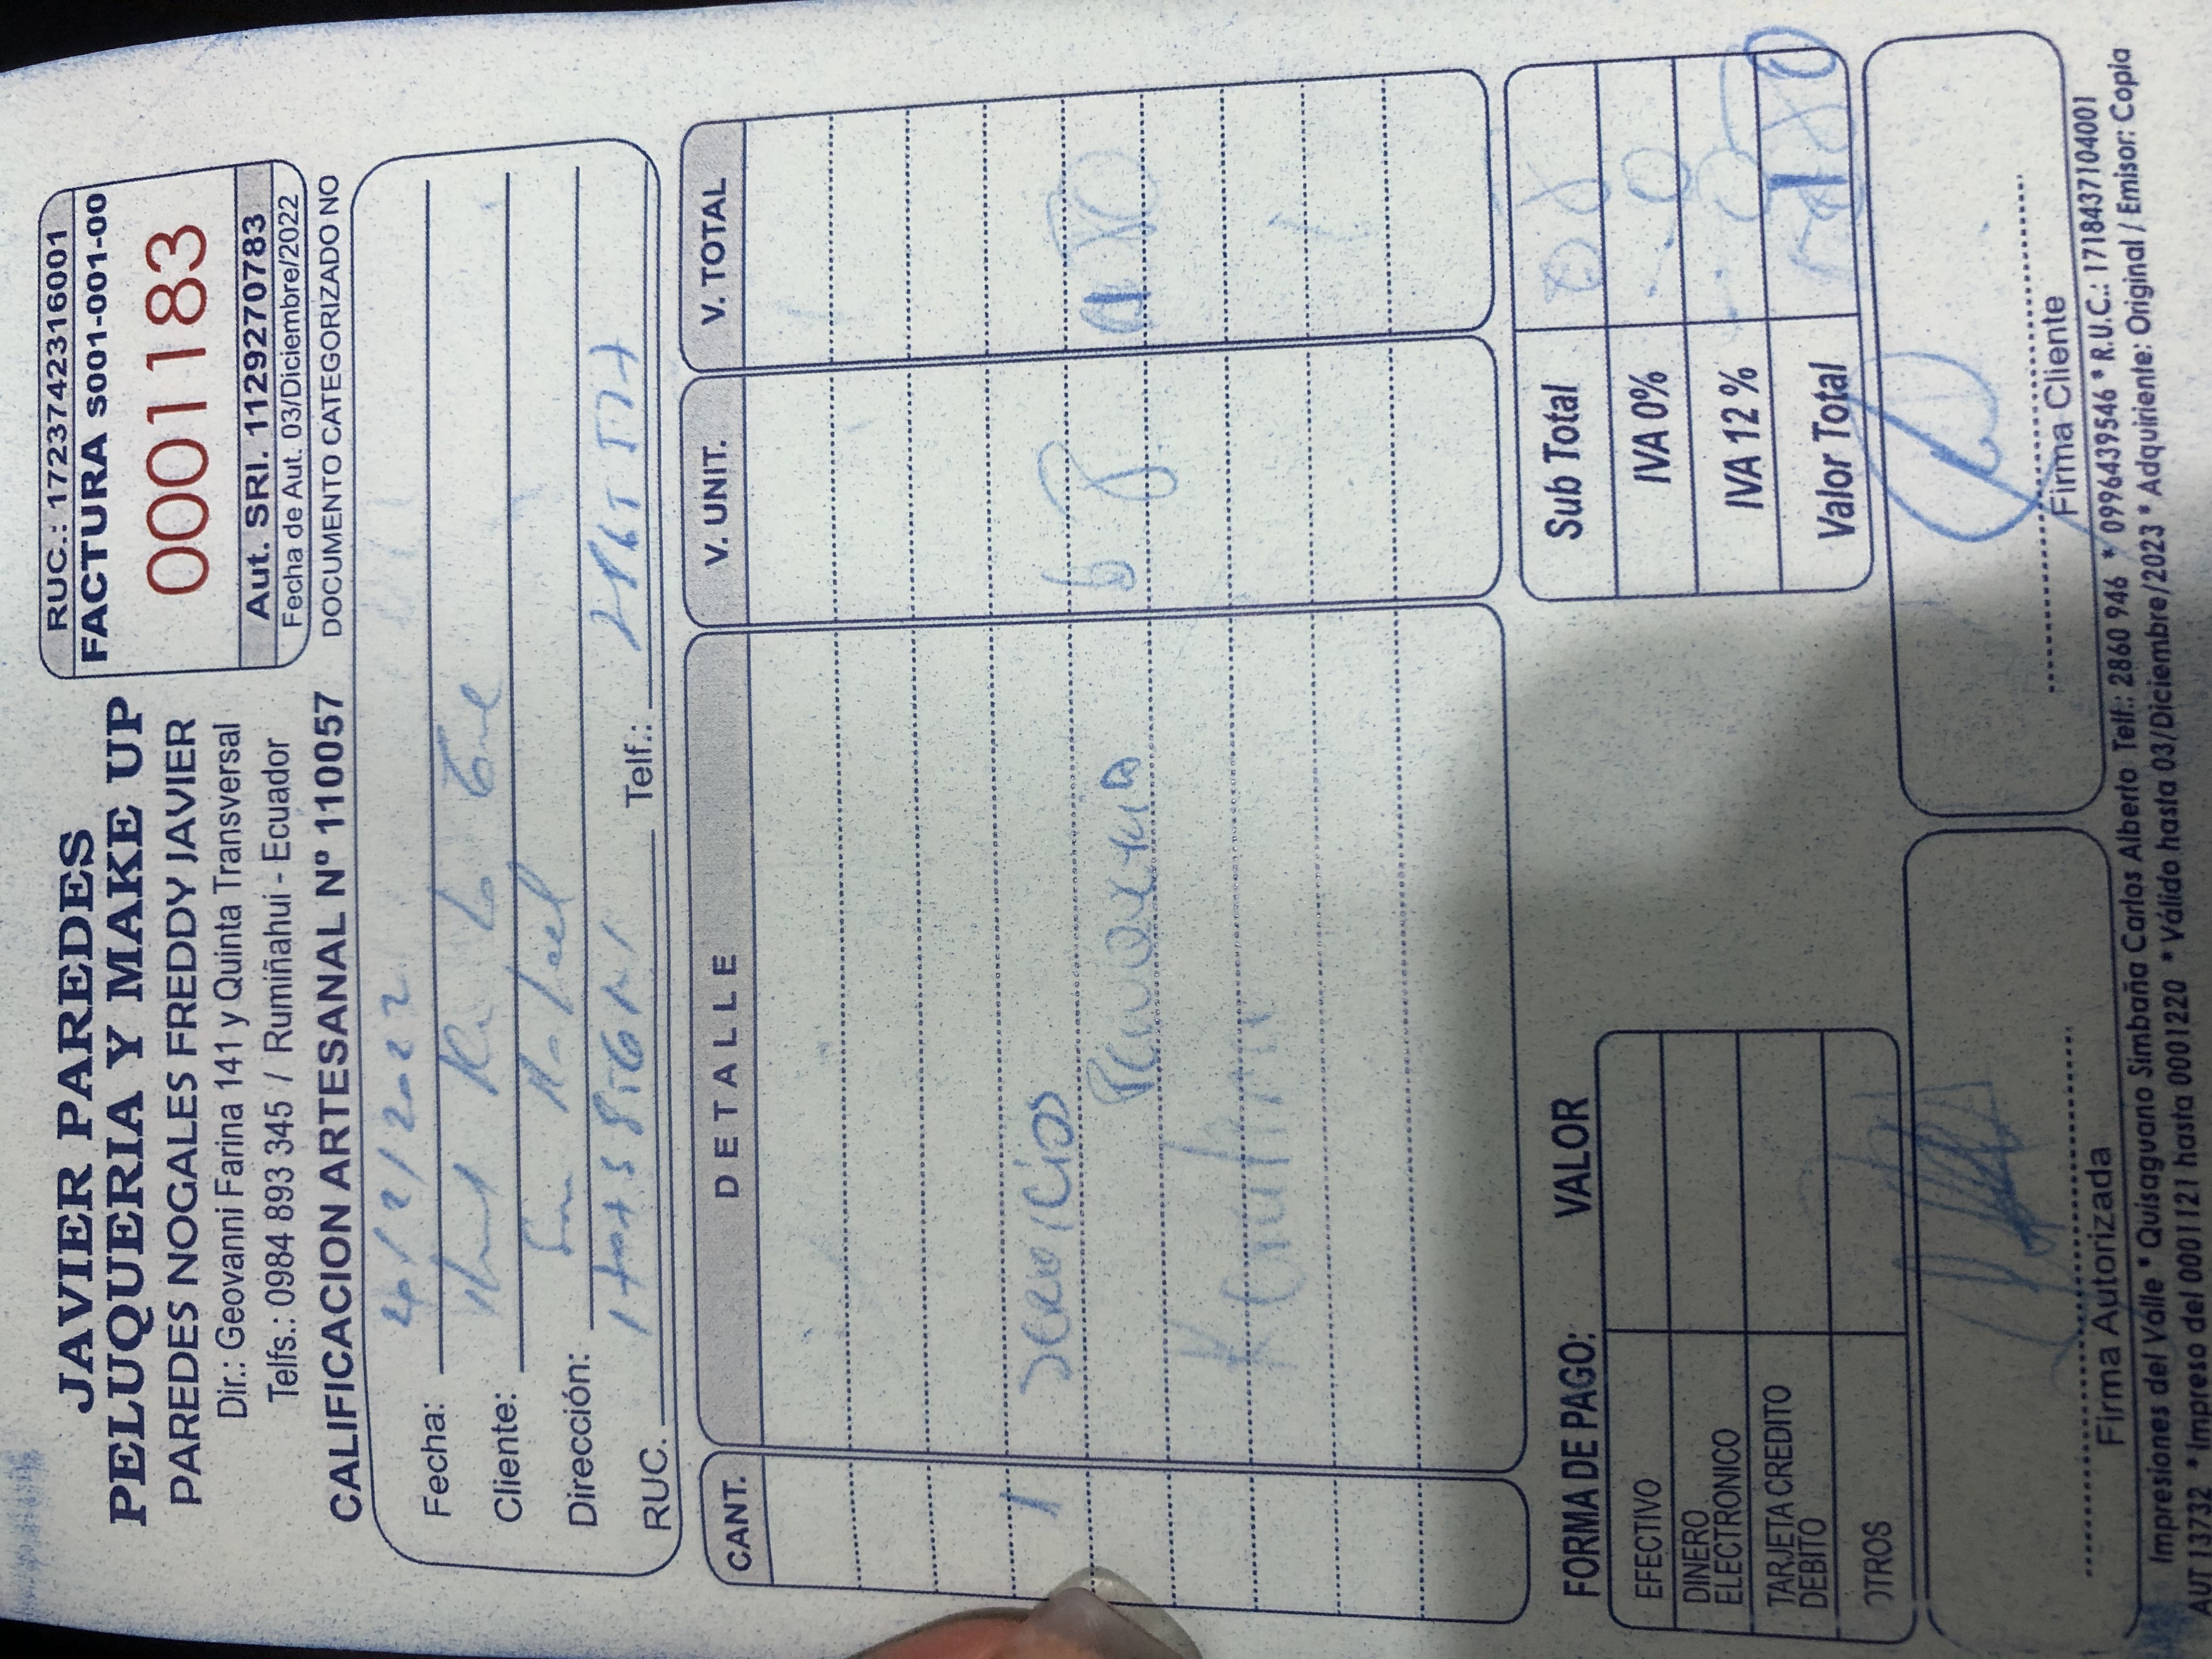 JAVIER PAREDES
PELUQUERIA Y MAKE UP
PAREDES NOGALES FREDDY JAVIER
Dir.: Geovanni Farina 141 y Quinta Transversal
Telfs.: 0984 893 345 / Rumiñahui - Ecuador
CALIFICACION ARTESANAL Nº 110057
RUC.: 1723742316001
FACTURA S001-001-00
0001183
Aut. SRI. 1129270783
Fecha de Aut. 03/Diciembre/2022
DOCUMENTO CATEGORIZADO NO
Fecha:
Cliente:
Dirección: San Rafael
RUC. Telf.:
CANT. DETALLE V. UNIT. V. TOTAL
1 Servicios
Keratina
FORMA DE PAGO: VALOR
EFECTIVO
DINERO ELECTRONICO
TARJETA CREDITO DEBITO
OTROS
Sub Total
IVA 0% 0
IVA 12 %
Valor Total
Firma Autorizada
Firma Cliente
Impresiones del Valle * Quisaguano Simbaña Carlos Alberto Telf.: 2860 946 * 0996439546 * R.U.C.: 1718437104001
AUT 13732 * Impreso del 0001121 hasta 0001220 * Válido hasta 03/Diciembre/2023 * Adquiriente: Original / Emisor: Copia